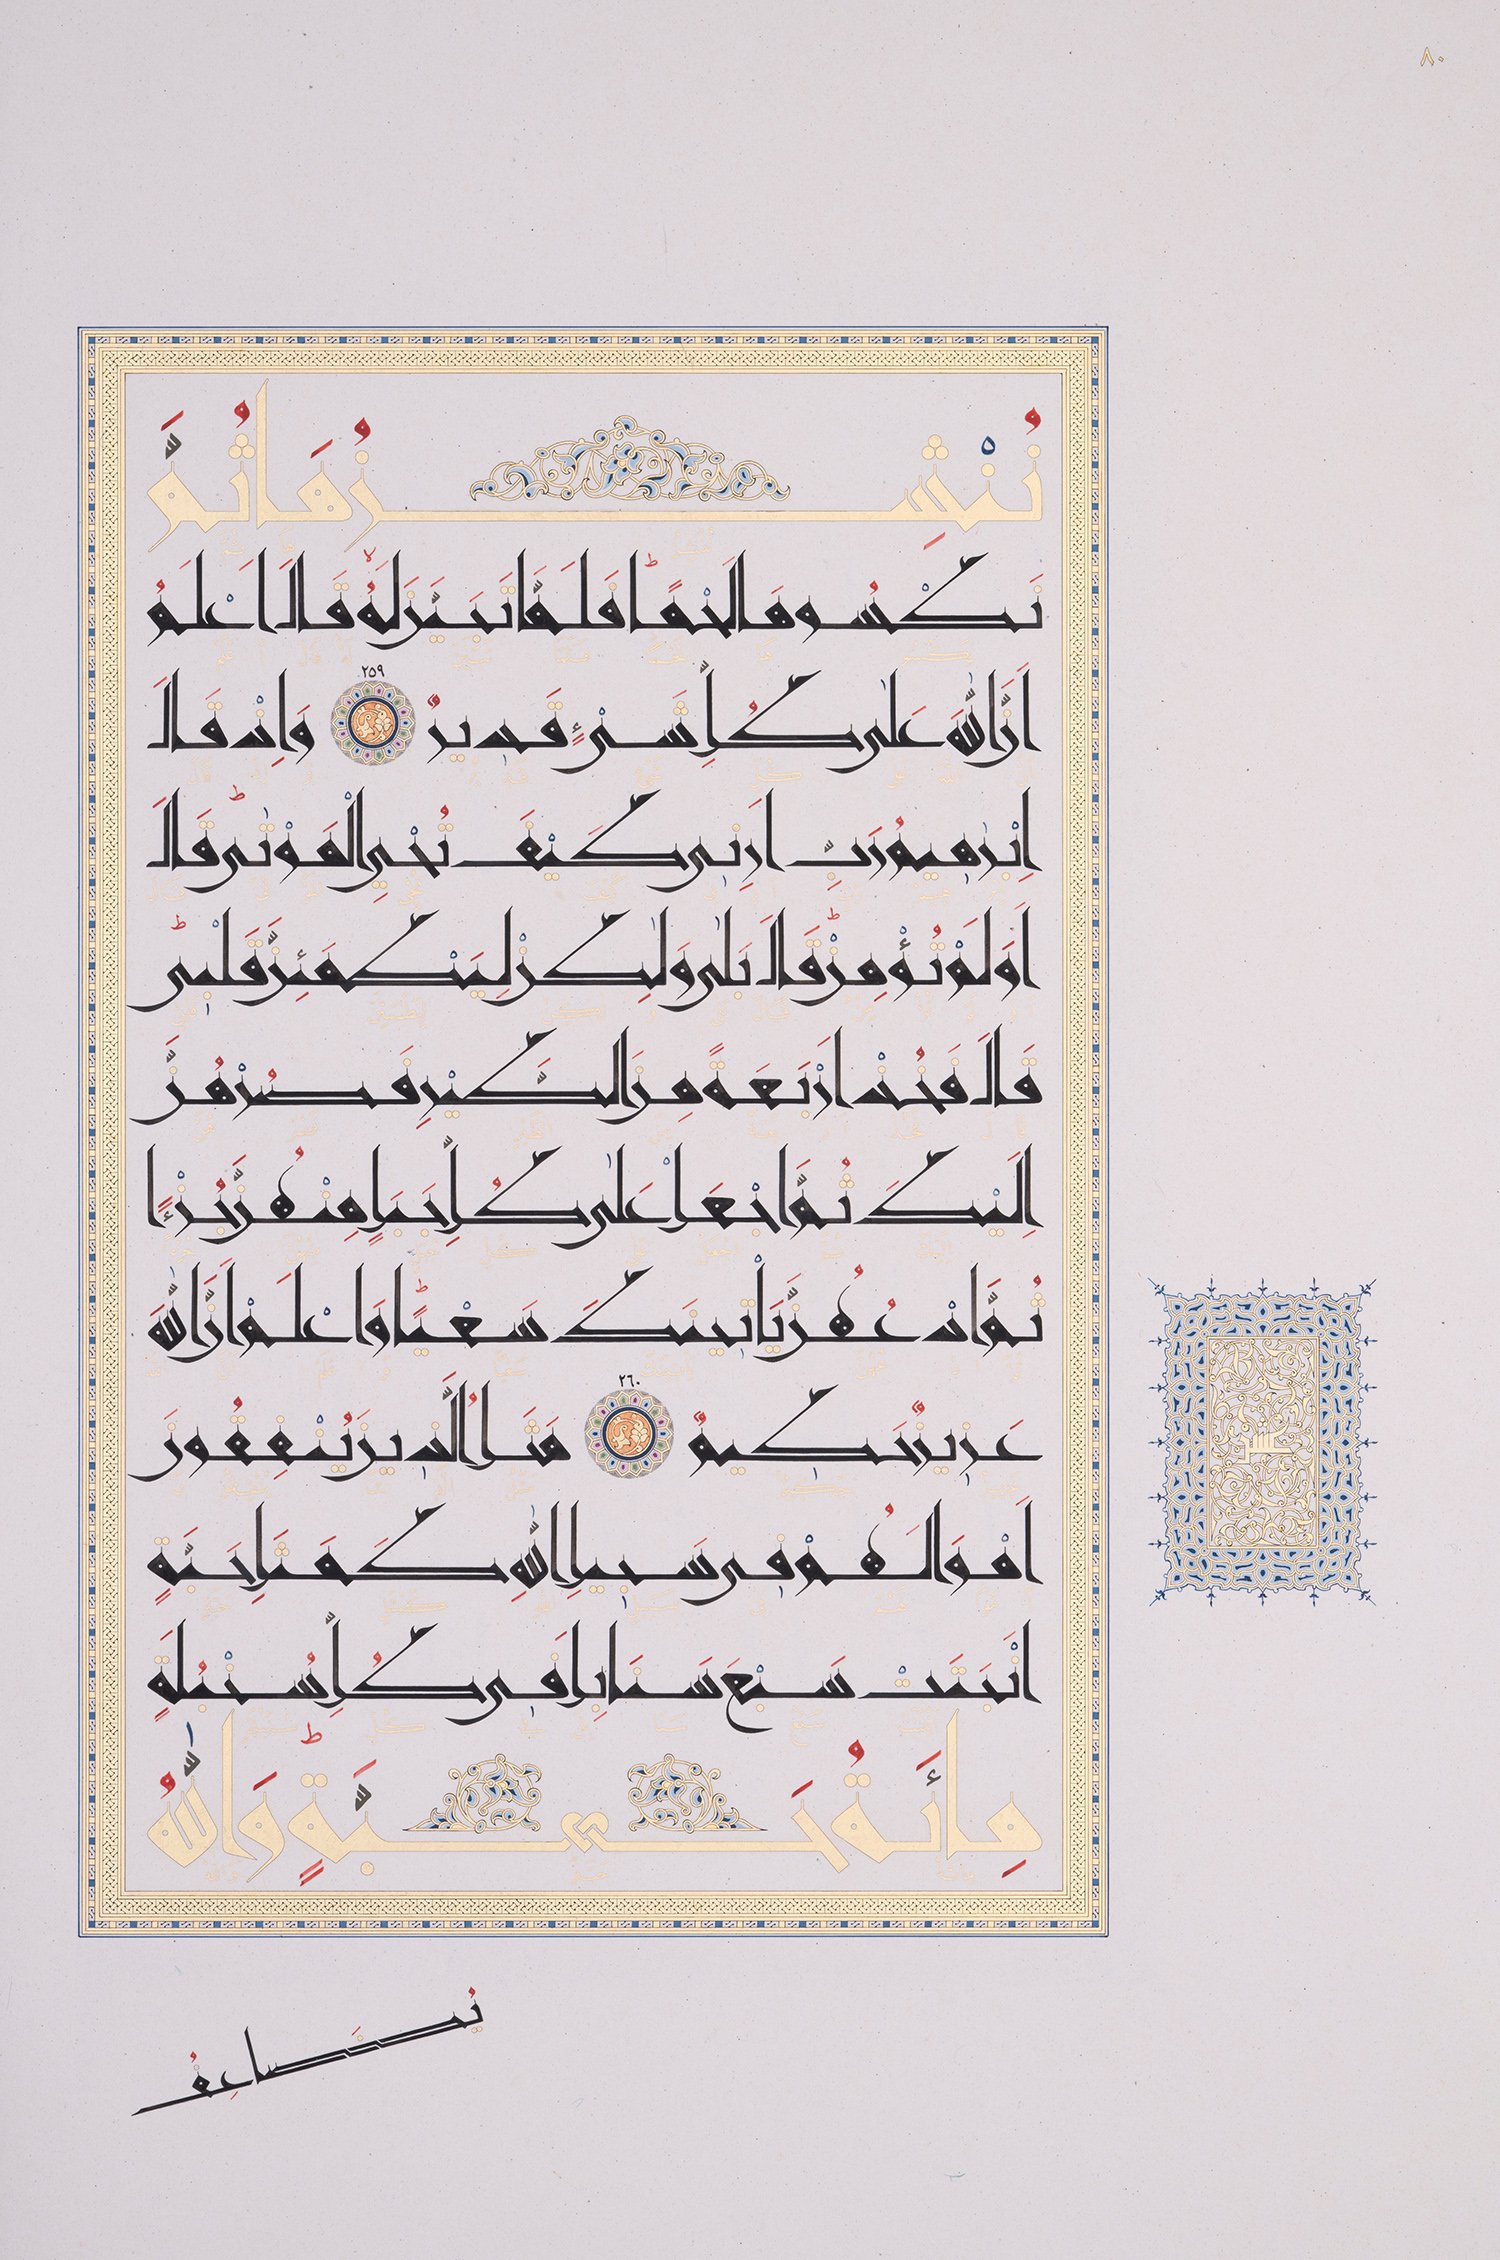 ٨٠
نُنْشِزُهَا ثُمَّ
نَكْسُوهَا لَحْمًا فَلَمَّا تَبَيَّنَ لَهُ قَالَ أَعْلَمُ
أَنَّ اللّٰهَ عَلٰى كُلِّ شَيْءٍ قَدِيرٌ ٢٥٩ وَإِذْ قَالَ
إِبْرٰهِيمُ رَبِّ أَرِنِي كَيْفَ تُحْيِي الْمَوْتٰى قَالَ
أَوَلَمْ تُؤْمِنْ قَالَ بَلٰى وَلٰكِنْ لِيَطْمَئِنَّ قَلْبِي
قَالَ فَخُذْ أَرْبَعَةً مِنَ الطَّيْرِ فَصُرْهُنَّ
إِلَيْكَ ثُمَّ اجْعَلْ عَلٰى كُلِّ جَبَلٍ مِنْهُنَّ جُزْءًا
ثُمَّ ادْعُهُنَّ يَأْتِينَكَ سَعْيًا وَاعْلَمْ أَنَّ اللّٰهَ
عَزِيزٌ حَكِيمٌ ٢٦٠ مَثَلُ الَّذِينَ يُنْفِقُونَ
أَمْوَالَهُمْ فِي سَبِيلِ اللّٰهِ كَمَثَلِ حَبَّةٍ
أَنْبَتَتْ سَبْعَ سَنَابِلَ فِي كُلِّ سُنْبُلَةٍ
مِائَةُ حَبَّةٍ وَاللّٰهُ
يُضَاعِفُ